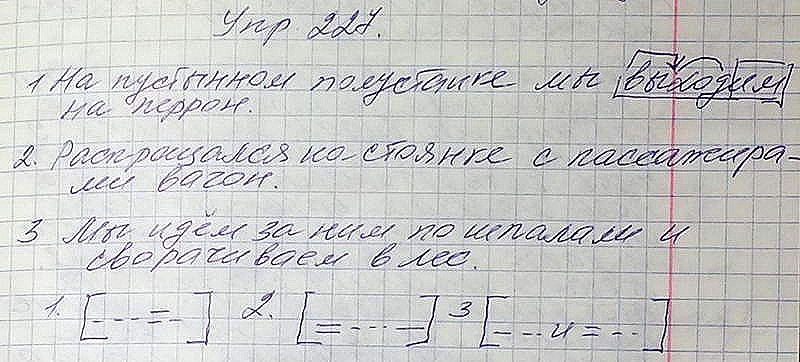 Упр. 227.
1 На пустынном полустанке мы выходим
на перрон.
2. Распрощался на стоянке с пассажира-
ми вагон.
3 Мы идём за ним по шпалам и
сворачиваем в лес.
1. [--·=-] 2. [=--·—] 3 [-··· и = -··]